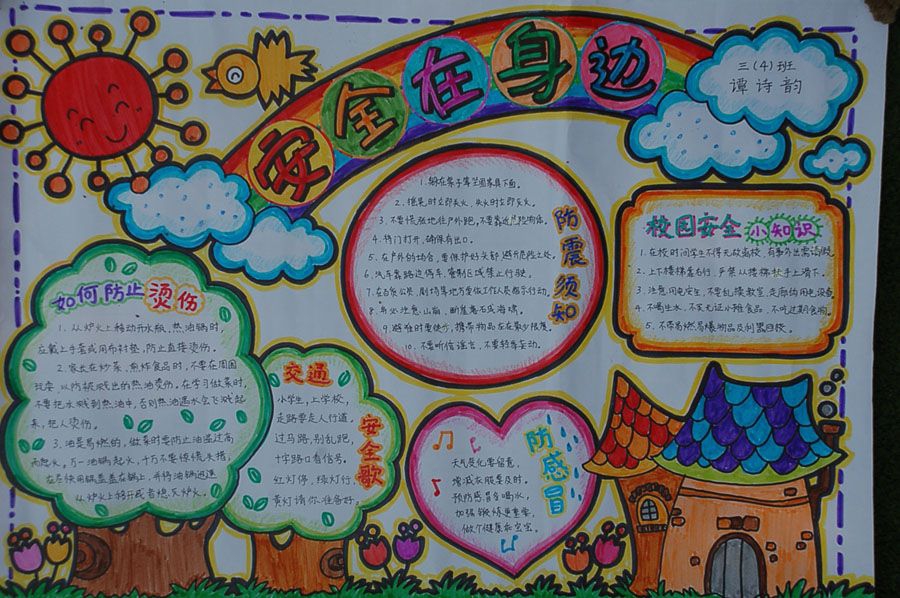 安全在身边
三(4)班
谭诗韵
如何防止烫伤
1. 从炉火上移动开水瓶、热油锅时,
应戴上手套或用布衬垫,防止直接烫伤。
2. 家长在炒菜、煎炸食品时,不要在周围
玩耍,以防被溅出的热油烫伤。在学习做菜时,
不要把水溅到热油中,否则热油遇水会飞溅起
来,把人烫伤。
3. 油是易燃的,做菜时要防止油温过高
而起火。万一油锅起火,千万不要惊慌失措,
应尽快用锅盖盖在锅上,并将油锅迅速
从炉火上移开或者熄灭炉火。
交通
安全歌
小学生,上学校,
走路要走人行道,
过马路,别乱跑,
十字路口看信号。
红灯停,绿灯行,
黄灯请你准备好。
防震须知
1. 躲在桌子等坚固家具下面。
2. 摇晃时立即关火,失火时立即灭火。
3. 不要慌张地往户外跑,
4. 将门打开,确保有出口。
5. 在户外的场合,要保护好头部,避开危险之处。
6. 汽车靠路边停车,管制区域禁止行驶。
8. 务必注意山崩、断崖落石或海啸。
9. 避难时要徒步,携带物品应在最少限度。
10. 不要听信谣言,不要轻举妄动。
防感冒
天气变化要留意,
增减衣服要及时,
预防感冒多喝水,
加强锻炼更重要,
做个健康乖宝宝。
校园安全小知识
1. 在校时间学生不得无故离校,有事外出需请假。
2. 上下楼梯靠右行,严禁从楼梯扶手上滑下。
3. 注意用电安全,不要乱摸教室、走廊的用电设备。
4. 不喝生水,不买无证小摊食品,不吃过期食物。
5. 不带易燃易爆物品及利器回校。